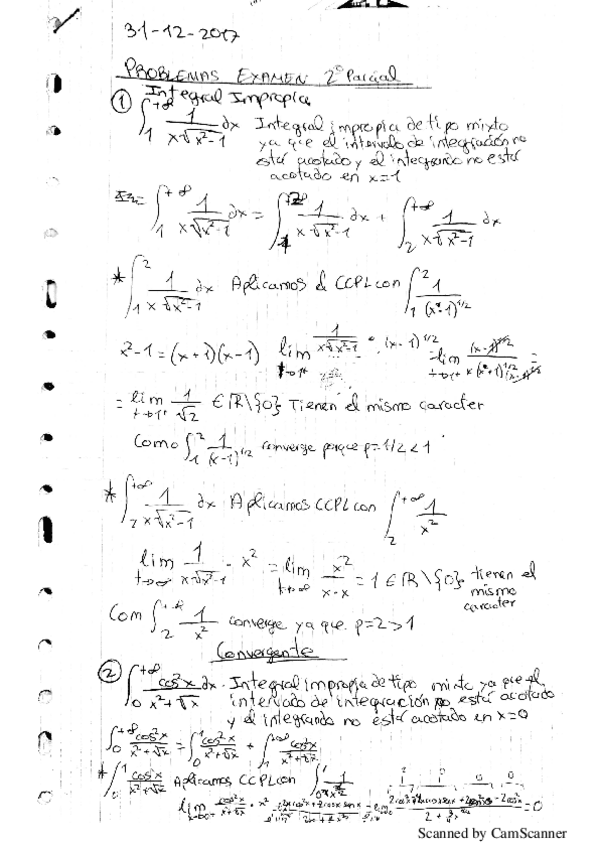 31-12-2017
PROBLEMAS EXAMEN 2º Parcial
① Integral Impropia
∫₁^{+∞} 1/(x√(x²-1)) dx Integral impropia de tipo mixto
ya que el intervalo de integración no
está acotado y el integrando no está
acotado en x=1
∫₁^{+∞} 1/(x√(x²-1)) dx = ∫₁² 1/(x√(x²-1)) dx + ∫₂^{+∞} 1/(x√(x²-1)) dx
* ∫₁² 1/(x√(x²-1)) dx Aplicamos el CCPL con ∫₁² 1/(x-1)^{1/2}
x²-1=(x+1)(x-1) lim 1/(x√(x²-1)) · (x-1)^{1/2} = lim (x-1)^{1/2}/(x(x+1)^{1/2}(x-1)^{1/2}) =
= lim 1/√2 ∈ ℝ\{0} Tienen el mismo caracter
Como ∫₁² 1/(x-1)^{1/2} converge porque p=1/2<1
* ∫₂^{+∞} 1/(x√(x²-1)) dx Aplicamos CCPL con ∫₂^{+∞} 1/x²
lim 1/(x√(x²-1)) · x² = lim x²/(x·x) = 1 ∈ ℝ\{0} tienen el
mismo
caracter
Com ∫₂^{+∞} 1/x² converge ya que p=2>1
Convergente
② ∫₀^{+∞} cos²x/(x²+√x) dx. Integral impropia de tipo mixto ya que el
intervalo de integración no está acotado
y el integrando no está acotado en x=0
∫₀^{+∞} cos²x/(x²+√x) = ∫₀¹ cos²x/(x²+√x) + ∫₁^{+∞} cos²x/(x²+√x)
* ∫₀¹ cos²x/(x²+√x) Aplicamos CCPL con ∫₀¹ 1/x²
lim cos²x/(x²+√x) · x² = 0
Scanned by CamScanner